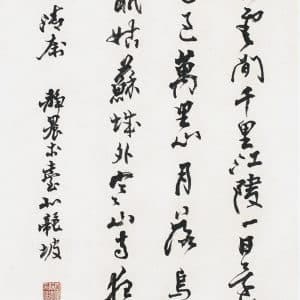 雲間千里江陵一日還
已過萬重山月落烏
眠姑蘇城外寒山寺夜
清屬 靜農於臺北龍坡